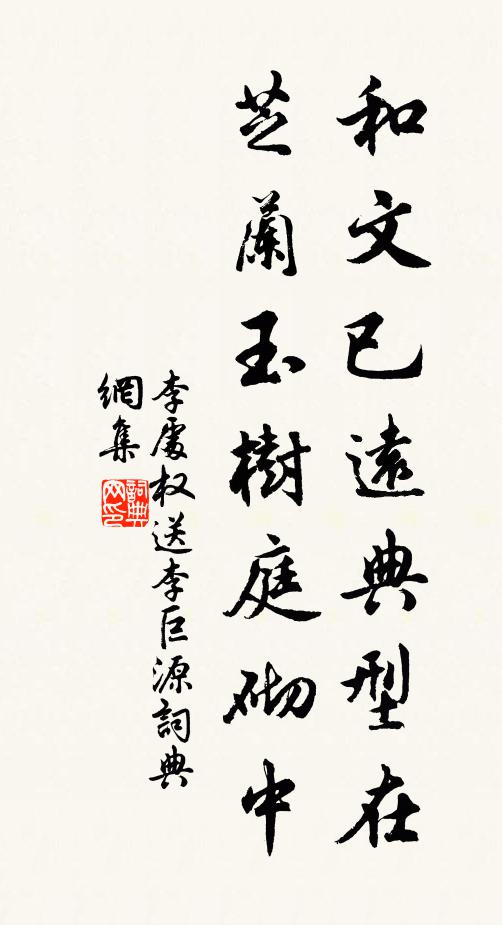 和文已遠典型在
芝蘭玉樹庭砌中
李處权送李巨源詞典
網集
詞典
网印